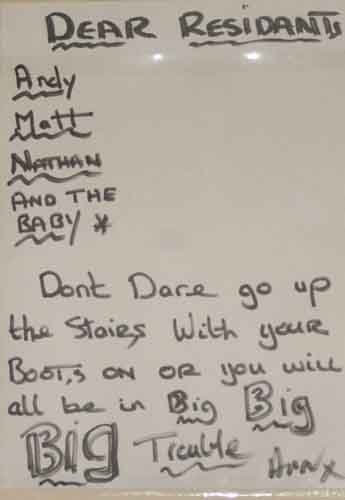 DEAR RESIDANTS
Andy
Matt
NATHAN
AND THE
BABY *
Dont Dare go up
the Stairs With your
BOOTS ON OR you will
all be in Big Big
BIG Trouble Ann x